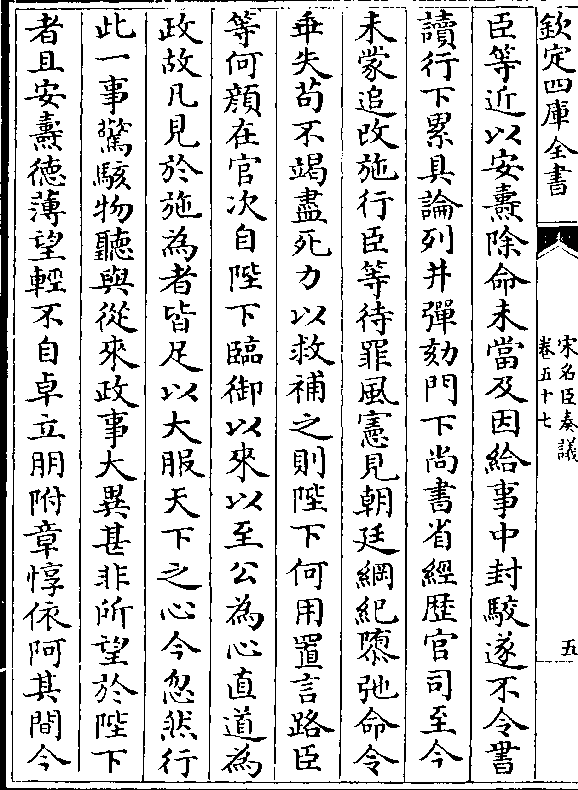 欽定四庫全書
宋名臣奏議
卷五十七
五
臣等近以安燾除命未當及因給事中封駮遂不令書
讀行下累具論列并彈劾門下尚書省經歴官司至今
未蒙追改施行臣等待罪風憲見朝廷綱紀隳弛命令
乖失茍不竭盡死力以救補之則陛下何用置言路臣
等何顔在官次自陛下臨御以來以至公為心直道為
政故凡見於施為者皆足以大服天下之心今忽然行
此一事驚駭物聽與從來政事大異甚非所望於陛下
者且安燾德薄望輕不自卓立朋附章惇依阿其間今